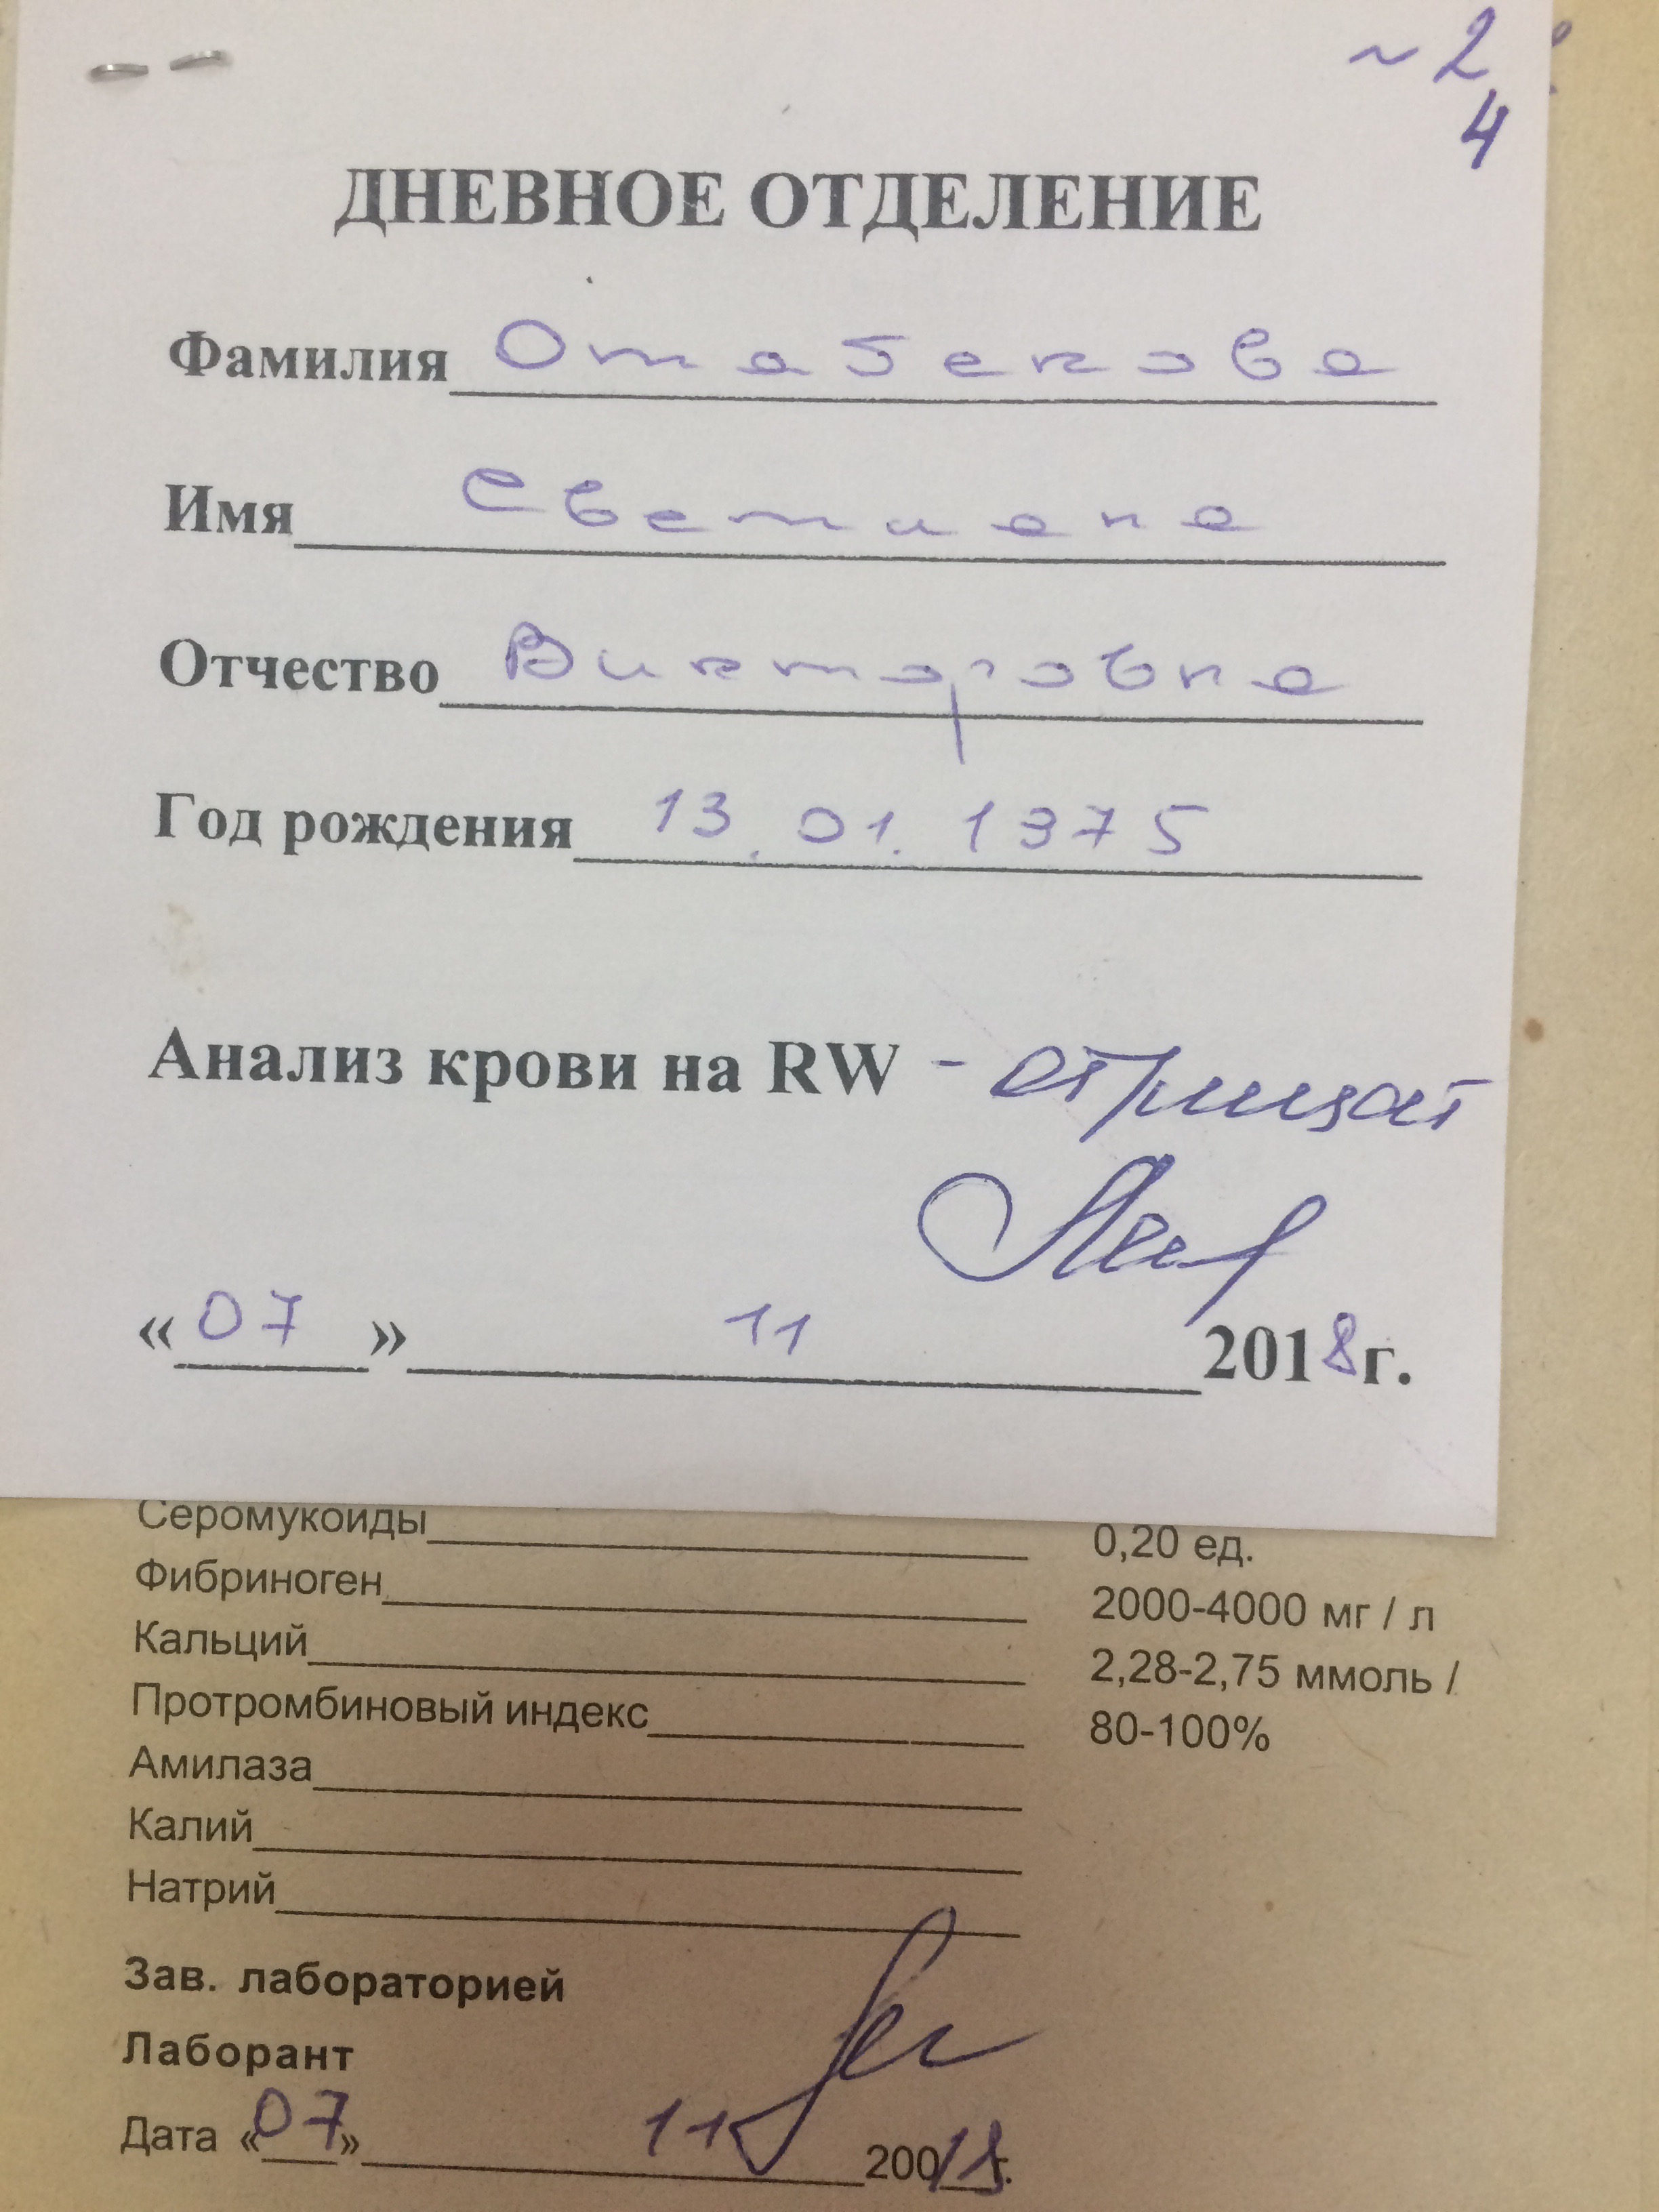 ~ 2
4
ДНЕВНОЕ ОТДЕЛЕНИЕ
Фамилия Отабекова
Имя Светлана
Отчество Викторовна
Год рождения 13.01.1975
Анализ крови на RW - отрицат
«07» 11 2018г.
Серомукоиды 0,20 ед.
Фибриноген 2000-4000 мг / л
Кальций 2,28-2,75 ммоль /
Протромбиновый индекс 80-100%
Амилаза
Калий
Натрий
Зав. лабораторией
Лаборант
Дата «07» 11 200 18 г.